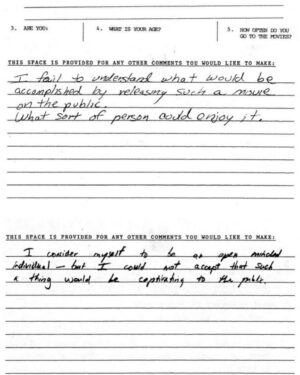 3. ARE YOU: 4. WHAT IS YOUR AGE? 5. HOW OFTEN DO YOU
GO TO THE MOVIES?
THIS SPACE IS PROVIDED FOR ANY OTHER COMMENTS YOU WOULD LIKE TO MAKE:
I fail to understand what would be
accomplished by releasing such a movie
on the public.
What sort of person could enjoy it.
THIS SPACE IS PROVIDED FOR ANY OTHER COMMENTS YOU WOULD LIKE TO MAKE:
I consider myself to be an open minded
individual - but I could not accept that such
a thing would be captivating to the public.